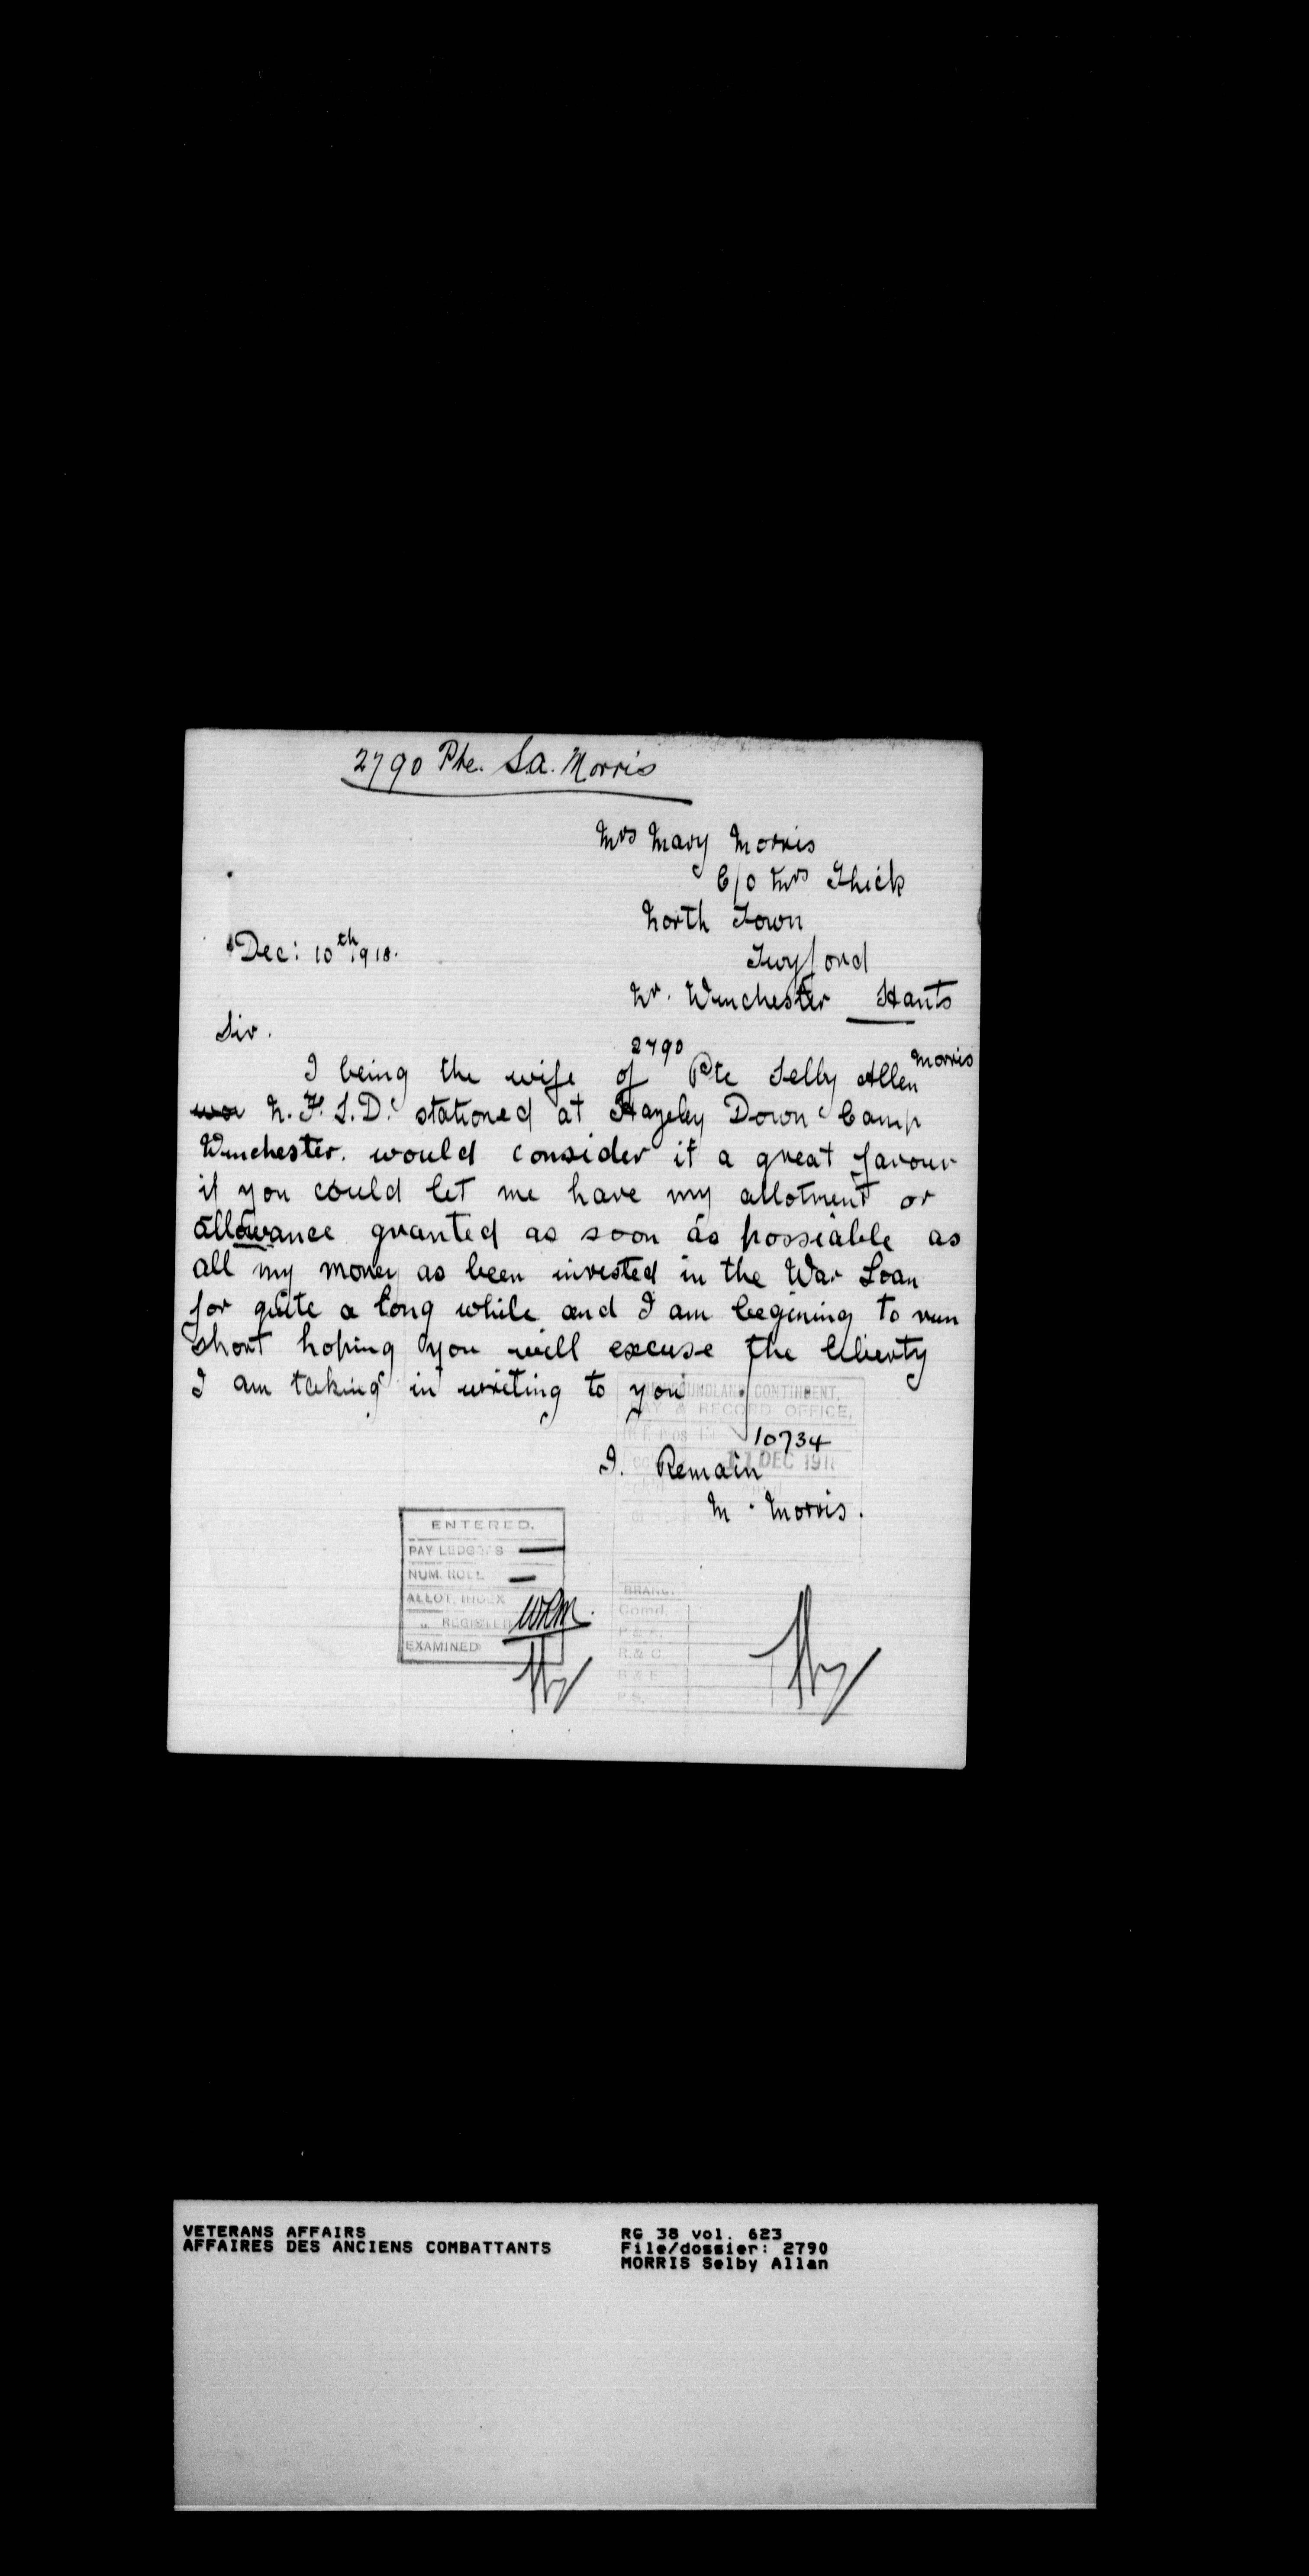 2790 Pte. S.A. Morris
Mrs Mary Morris
C/o Mrs Thick
North Town
Dec: 10th 1918.
Twyford
Nr. Winchester Hants
Sir.
2790
I being the wife of Pte Selby Allen Morris
N.F.L.D. stationed at Hazeley Down Camp
Winchester. would consider it a great favour
if you could let me have my allotment or
allowance granted as soon as possiable as
all my money as been invested in the War Loan
for quite a long while and I am begining to run
short hoping you will excuse the liberty
I am taking in writing to you
NEWFOUNDLAND CONTINGENT,
PAY & RECORD OFFICE.
10734
11 DEC 191
I. Remain
M. Morris.
ENTERED.
PAY LEDGERS
NUM. ROLL
ALLOT. INDEX
„ REGISTER
EXAMINED
WRM.
BRANC.
Comd.
P & A.
R. & C.
B & E
P.S.
VETERANS AFFAIRS
AFFAIRES DES ANCIENS COMBATTANTS
RG 38 vol. 623
File/dossier: 2790
MORRIS Selby Allan